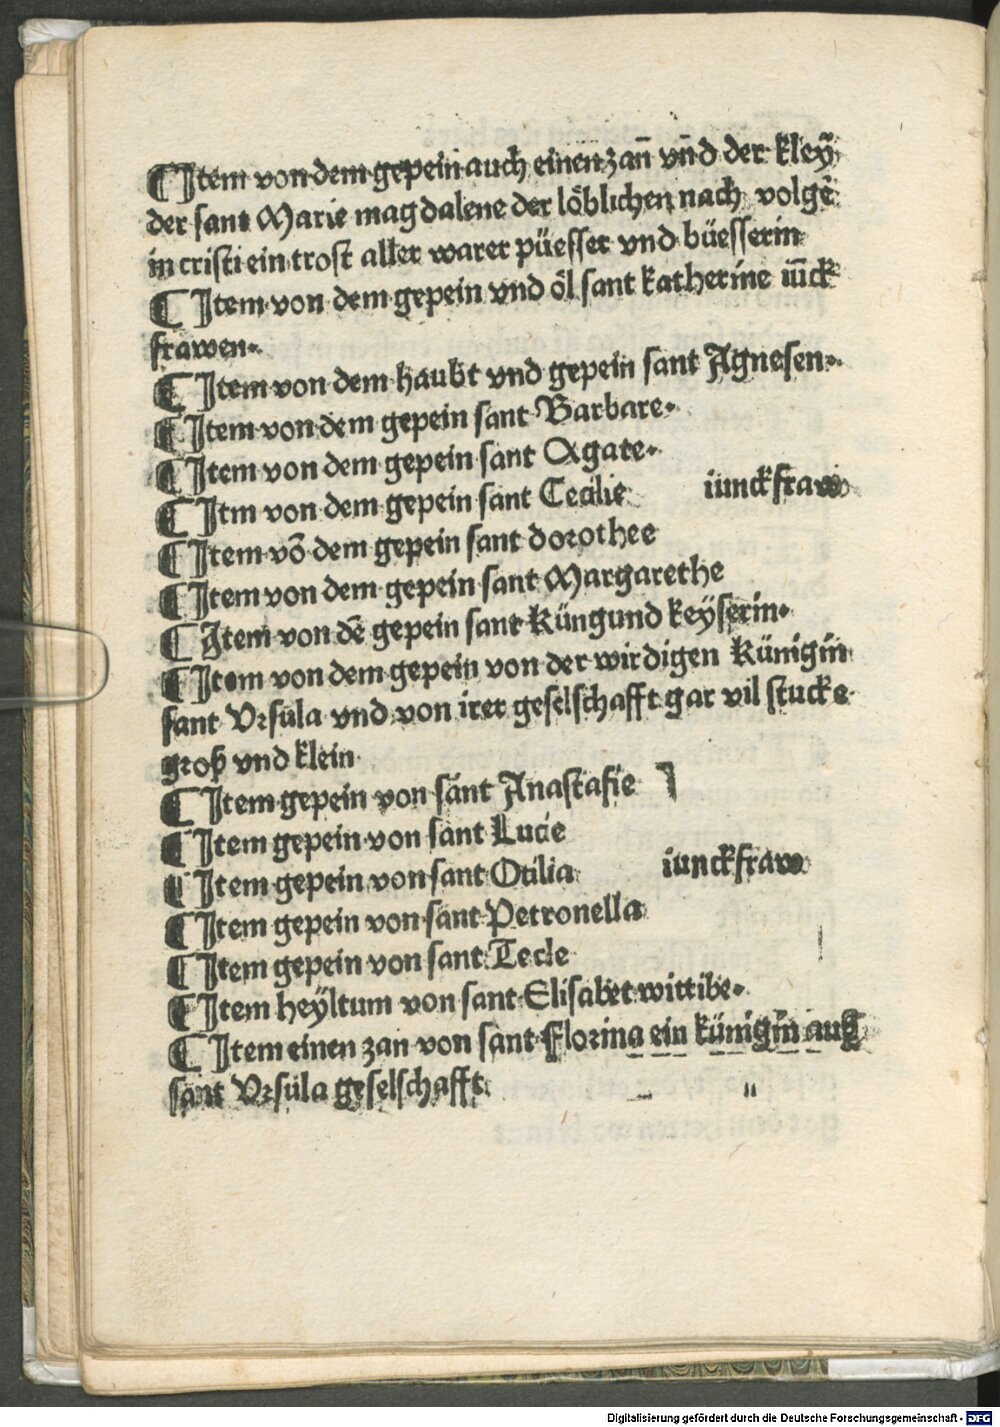 ¶ Item von dem gepein auch einen zan̄ vn̄d der kley᷑
der sant Marie magdalene der löblichen nach volgē
in cristi ein trost aller warer püesser vnd büesserin
¶ Item von dem gepein vnd öl sant katherine iūck
frawen.
¶ Item von dem haubt vnd gepein sant Agnesen.
¶ Item von dem gepein sant Barbare.
¶ Item von dem gepein sant Agate.
¶ Itm von dem gepein sant Cecilie iunckfraw
¶ Item vō dem gepein sant dorothee
¶ Item von dem gepein sant Margarethe
¶ Item von dē gepein sant Küngund keyserin.
¶ Item von dem gepein von der wirdigen Künigin
sant Vrsula vnd von irer geselschafft gar vil stucke
groß vnd klein
¶ Item gepein von sant Anastasie
¶ Item gepein von sant Lucie
¶ Item gepein von sant Otilia iunckfraw
¶ Item gepein von sant Petronella
¶ Item gepein von sant Tecle
¶ Item heÿltum von sant Elisabet wittibe.
¶ Item einen zan von sant Florina ein künigin auß
sant Vrsula geselschafft
Digitalisierung gefördert durch die Deutsche Forschungsgemeinschaft - DFG